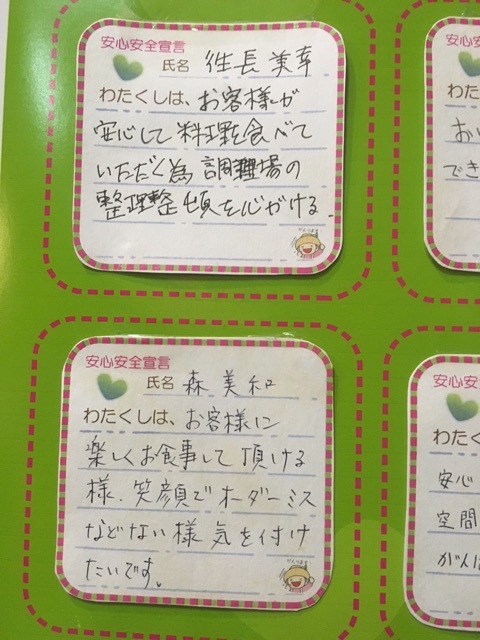 安心安全宣言
氏名 徃長美幸
わたくしは、お客様が
安心して料理を食べて
いただく為調理場の
整理整頓を心がける.
安心安全宣言
お
でき
安心安全宣言
氏名 森美和
わたくしは、お客様に
楽しくお食事して頂ける
様、笑顔でオーダーミス
などない様気を付け
たいです。
安心安全宣言
わたく
安心
空間
がんば